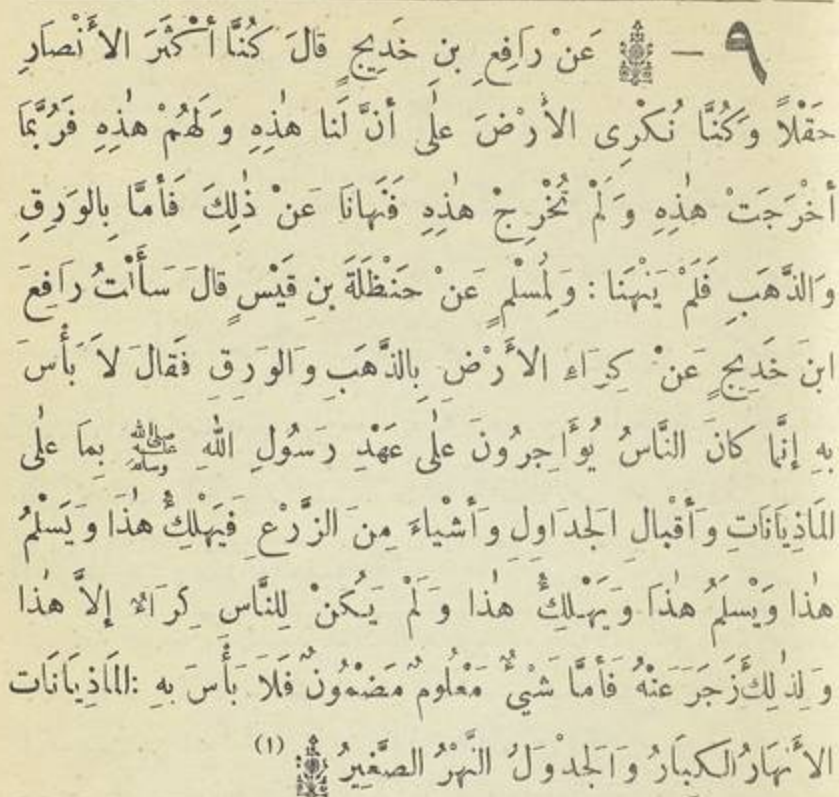 ٩ – عَنْ رَافِعِ بنِ خَدِيجٍ قالَ كُنَّا أَكْثَرَ الأَنْصَارِ
حَقْلاً وَكُنَّا نُكْرِى الأَرْضَ عَلَى أنَّ لَنا هٰذِهِ وَلَهُمْ هٰذِهِ فَرُبَّمَا
أَخْرَجَتْ هٰذِهِ وَلَمْ تُخْرِجْ هٰذِهِ فَنَهانَا عَنْ ذٰلِكَ فَأَمَّا بِالوَرِقِ
وَالذَّهَبِ فَلَمْ يَنْهَنا : وَلِمُسْلِمٍ عَنْ حَنْظَلَةَ بنِ قَيْسٍ قالَ سَأَلْتُ رَافِعَ
ابنَ خَدِيجٍ عَنْ كِرَاءِ الأَرْضِ بِالذَّهَبِ وَالوَرِقِ فَقالَ لاَ بَأْسَ
بِهِ إنَّمَا كانَ النَّاسُ يُوَّاجِرُونَ عَلَى عَهْدِ رَسُولِ اللهِ ﷺ بِمَا عَلَى
المَاذِيَانَاتِ وَأَقْبالِ الجَدَاوِلِ وَأَشْياءَ مِنَ الزَّرْعِ فَيَهْلِكُ هٰذَا وَيَسْلَمُ
هٰذا وَيَسْلَمُ هٰذَا وَيَهْلِكُ هٰذا وَلَمْ يَكُنْ لِلنَّاسِ كِرَاءٌ إلاَّ هٰذا
وَلِذٰلِكَ زَجَرَ عَنْهُ فَأَمَّا شَيْءٌ مَعْلُومٌ مَضْمُونٌ فَلاَ بَأْسَ بِهِ : المَاذِيَانَات
الأَنهَارُ الكِبَارُ وَالجَدْوَلُ النَّهْرُ الصَّغِيرُ (١)